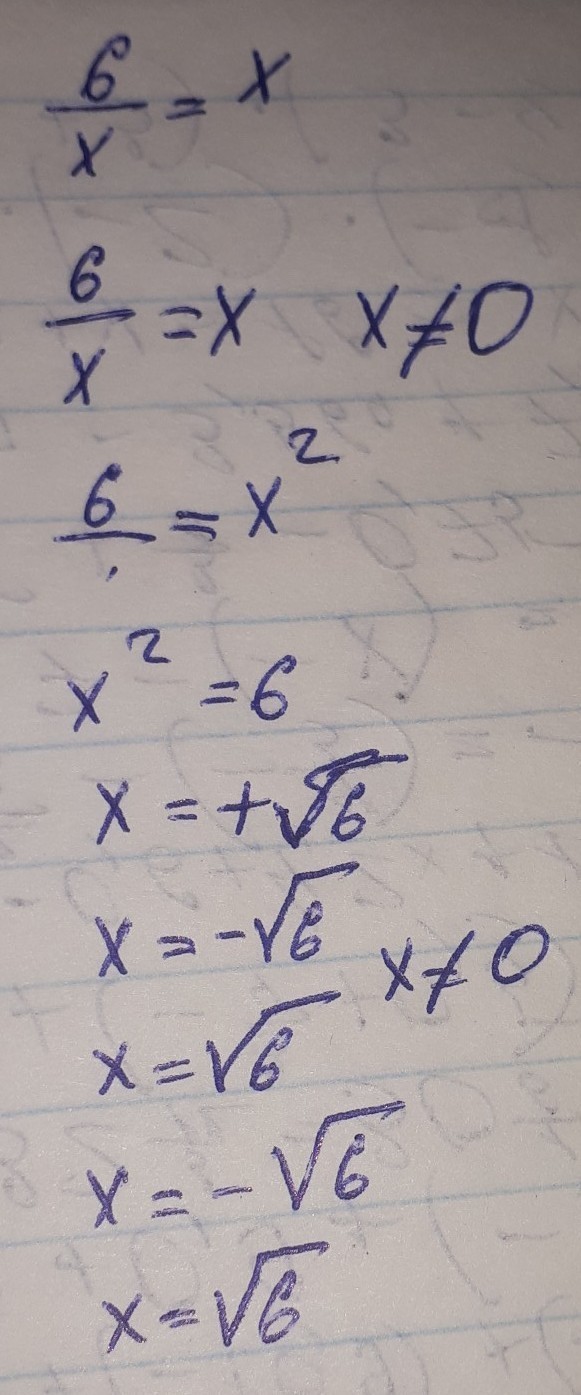 6/x = x
6/x = x x ≠ 0
6/. = x²
x² = 6
x = +√6
x = -√6 x ≠ 0
x = √6
x = -√6
x = √6